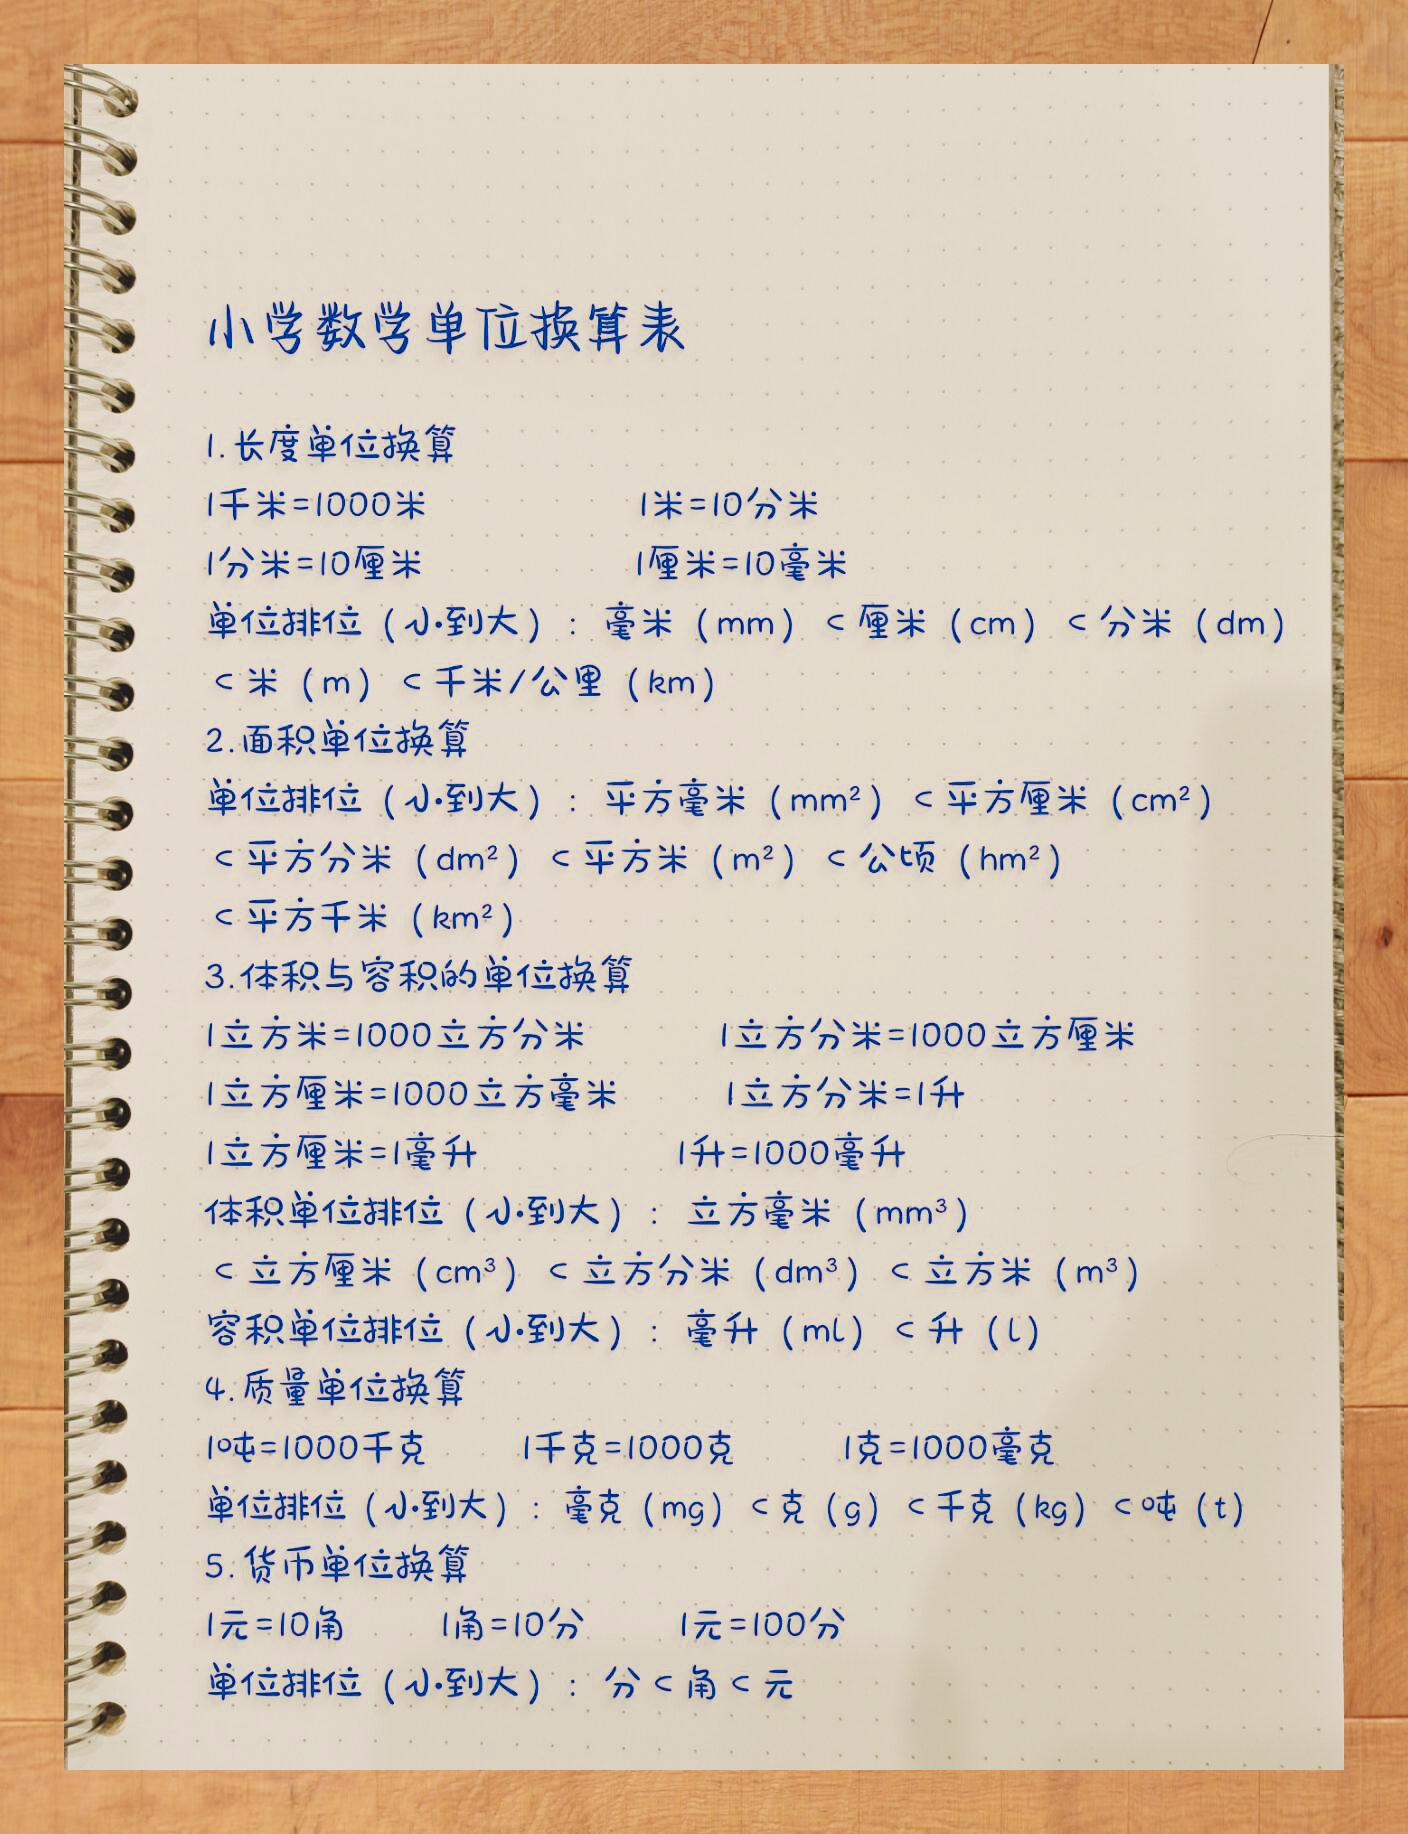 小学数学单位换算表
1.长度单位换算
1千米=1000米 1米=10分米
1分米=10厘米 1厘米=10毫米
单位排位（小到大）：毫米（mm）<厘米（cm）<分米（dm）
<米（m）<千米/公里（km）
2.面积单位换算
单位排位（小到大）：平方毫米（mm²）<平方厘米（cm²）
<平方分米（dm²）<平方米（m²）<公顷（hm²）
<平方千米（km²）
3.体积与容积的单位换算
1立方米=1000立方分米 1立方分米=1000立方厘米
1立方厘米=1000立方毫米 1立方分米=1升
1立方厘米=1毫升 1升=1000毫升
体积单位排位（小到大）：立方毫米（mm³）
<立方厘米（cm³）<立方分米（dm³）<立方米（m³）
容积单位排位（小到大）：毫升（ml）<升（l）
4.质量单位换算
1吨=1000千克 1千克=1000克 1克=1000毫克
单位排位（小到大）：毫克（mg）<克（g）<千克（kg）<吨（t）
5.货币单位换算
1元=10角 1角=10分 1元=100分
单位排位（小到大）：分<角<元